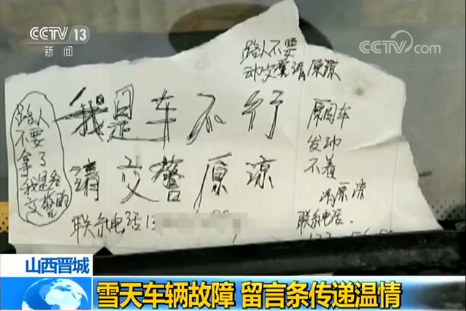 CCTV 13
新闻
CCTV.com
路人不要
动交警请原谅
我是车不行
请交警原谅
联系电话13
路人
不要
拿了
我是给
交警的
周围车
发动
不着
请原谅
联系电话
山西晋城
雪天车辆故障 留言条传递温情